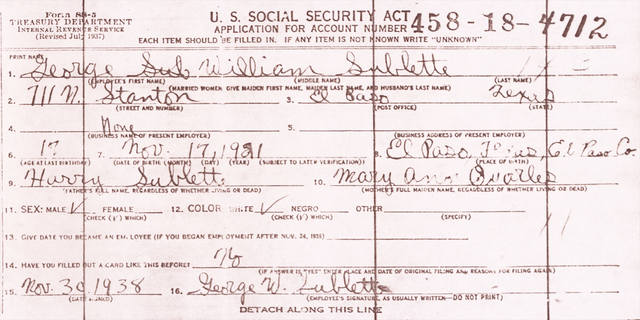 Form SS-5
TREASURY DEPARTMENT
INTERNAL REVENUE SERVICE
(Revised July 1937)
U. S. SOCIAL SECURITY ACT
APPLICATION FOR ACCOUNT NUMBER
458-18-4712
EACH ITEM SHOULD BE FILLED IN. IF ANY ITEM IS NOT KNOWN WRITE "UNKNOWN"
PRINT NAME
1. George Sub William Sublette
(EMPLOYEE'S FIRST NAME) (MIDDLE NAME) (LAST NAME)
(MARRIED WOMEN: GIVE MAIDEN FIRST NAME, MAIDEN LAST NAME, AND HUSBAND'S LAST NAME)
2. 711 N. Stanton 3. El Paso Texas
(STREET AND NUMBER) (POST OFFICE) (STATE)
4. None 5.
(BUSINESS NAME OF PRESENT EMPLOYER) (BUSINESS ADDRESS OF PRESENT EMPLOYER)
6. 17 7. Nov. 17, 1921 8. El Paso, Texas, El Paso Co.
(AGE AT LAST BIRTHDAY) (DATE OF BIRTH: (MONTH) (DAY) (YEAR) (SUBJECT TO LATER VERIFICATION) (PLACE OF BIRTH)
9. Harry Sublette 10. Mary Ann Quarles
(FATHER'S FULL NAME, REGARDLESS OF WHETHER LIVING OR DEAD) (MOTHER'S FULL MAIDEN NAME, REGARDLESS OF WHETHER LIVING OR DEAD)
11. SEX: MALE ✓ FEMALE 12. COLOR: WHITE ✓ NEGRO OTHER
(CHECK (✓) WHICH) (CHECK (✓) WHICH) (SPECIFY)
13. GIVE DATE YOU BECAME AN EMPLOYEE (IF YOU BEGAN EMPLOYMENT AFTER NOV. 24, 1936)
14. HAVE YOU FILLED OUT A CARD LIKE THIS BEFORE? No
(IF ANSWER IS "YES" ENTER PLACE AND DATE OF ORIGINAL FILING AND REASONS FOR FILING AGAIN)
15. Nov. 30, 1938 16. George W. Sublette
(DATE SIGNED) (EMPLOYEE'S SIGNATURE, AS USUALLY WRITTEN—DO NOT PRINT)
DETACH ALONG THIS LINE